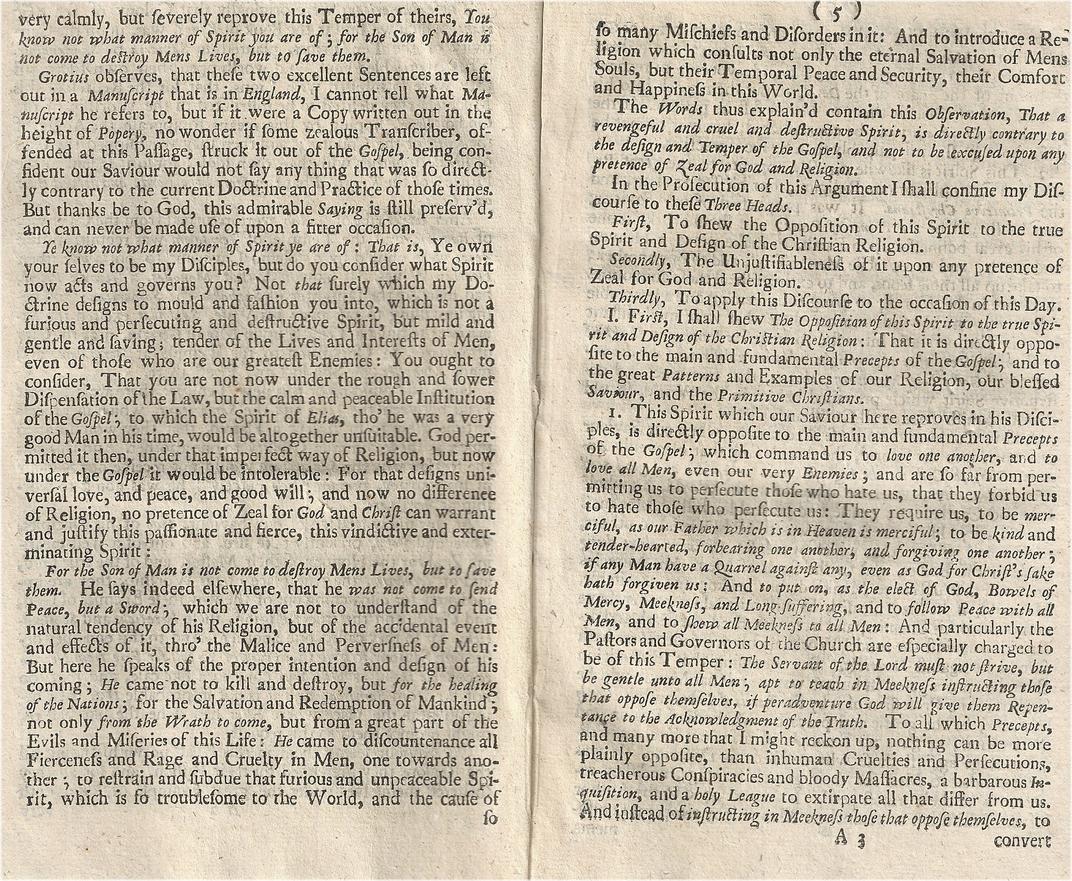 very calmly, but ſeverely reprove this Temper of theirs, You
know not what manner of Spirit you are of; for the Son of Man is
not come to deſtroy Mens Lives, but to ſave them.
Grotius obſerves, that theſe two excellent Sentences are left
out in a Manuſcript that is in England, I cannot tell what Ma-
nuſcript he refers to, but if it were a Copy written out in the
height of Popery, no wonder if some zealous Tranſcriber, of-
fended at this Paſſage, ſtruck it out of the Goſpel, being con-
fident our Saviour would not ſay any thing that was ſo direct-
ly contrary to the current Doctrine and Practice of thoſe times.
But thanks be to God, this admirable Saying is ſtill preſerv'd,
and can never be made uſe of upon a fitter occaſion.
Ye know not what manner of Spirit ye are of: That is, Ye own
your ſelves to be my Diſciples, but do you conſider what Spirit
now acts and governs you? Not that ſurely which my Do-
ctrine deſigns to mould and faſhion you into, which is not a
furious and perſecuting and deſtructive Spirit, but mild and
gentle and ſaving; tender of the Lives and Intereſts of Men,
even of thoſe who are our greateſt Enemies: You ought to
conſider, That you are not now under the rough and ſower
Diſpenſation of the Law, but the calm and peaceable Inſtitution
of the Goſpel; to which the Spirit of Elias, tho' he was a very
good Man in his time, would be altogether unſuitable. God per-
mitted it then, under that imperfect way of Religion, but now
under the Goſpel it would be intolerable: For that deſigns uni-
verſal love, and peace, and good will; and now no difference
of Religion, no pretence of Zeal for God and Chriſt can warrant
and juſtify this paſſionate and fierce, this vindictive and exter-
minating Spirit:
For the Son of Man is not come to deſtroy Mens Lives, but to ſave
them. He ſays indeed elſewhere, that he was not come to ſend
Peace, but a Sword; which we are not to underſtand of the
natural tendency of his Religion, but of the accidental event
and effects of it, thro' the Malice and Perverſneſs of Men:
But here he ſpeaks of the proper intention and deſign of his
coming; He came not to kill and deſtroy, but for the healing
of the Nations; for the Salvation and Redemption of Mankind;
not only from the Wrath to come, but from a great part of the
Evils and Miſeries of this Life: He came to diſcountenance all
Fierceneſs and Rage and Cruelty in Men, one towards ano-
ther; to reſtrain and ſubdue that furious and unpeaceable Spi-
rit, which is ſo troubleſome to the World, and the cauſe of
ſo
( 5 )
ſo many Miſchiefs and Diſorders in it: And to introduce a Re-
ligion which conſults not only the eternal Salvation of Mens
Souls, but their Temporal Peace and Security, their Comfort
and Happineſs in this World.
The Words thus explain'd contain this Obſervation, That a
revengeful and cruel and deſtructive Spirit, is directly contrary to
the deſign and Temper of the Goſpel, and not to be excuſed upon any
pretence of Zeal for God and Religion.
In the Proſecution of this Argument I ſhall confine my Diſ-
courſe to theſe Three Heads.
Firſt, To ſhew the Oppoſition of this Spirit to the true
Spirit and Deſign of the Chriſtian Religion.
Secondly, The Unjuſtifiableneſs of it upon any pretence of
Zeal for God and Religion.
Thirdly, To apply this Diſcourſe to the occaſion of this Day.
I. Firſt, I ſhall ſhew The Oppoſition of this Spirit to the true Spi-
rit and Deſign of the Chriſtian Religion: That it is directly oppo-
ſite to the main and fundamental Precepts of the Goſpel; and to
the great Patterns and Examples of our Religion, our bleſſed
Saviour, and the Primitive Chriſtians.
1. This Spirit which our Saviour here reproves in his Diſci-
ples, is directly oppoſite to the main and fundamental Precepts
of the Goſpel; which command us to love one another, and to
love all Men, even our very Enemies; and are ſo far from per-
mitting us to perſecute thoſe who hate us, that they forbid us
to hate thoſe who perſecute us: They require us, to be mer-
ciful, as our Father which is in Heaven is merciful; to be kind and
tender-hearted, forbearing one another, and forgiving one another;
if any Man have a Quarrel againſt any, even as God for Chriſt's ſake
hath forgiven us: And to put on, as the elect of God, Bowels of
Mercy, Meekneſs, and Long-ſuffering, and to follow Peace with all
Men, and to ſhew all Meekneſs to all Men: And particularly the
Paſtors and Governors of the Church are eſpecially charged to
be of this Temper: The Servant of the Lord muſt not ſtrive, but
be gentle unto all Men; apt to teach in Meekneſs inſtructing thoſe
that oppoſe themſelves, if peradventure God will give them Repen-
tance to the Acknowledgment of the Truth. To all which Precepts,
and many more that I might reckon up, nothing can be more
plainly oppoſite, than inhuman Cruelties and Perſecutions,
treacherous Conſpiracies and bloody Maſſacres, a barbarous In-
quiſition, and a holy League to extirpate all that differ from us.
And inſtead of inſtructing in Meekneſs thoſe that oppoſe themſelves, to
A 3
convert